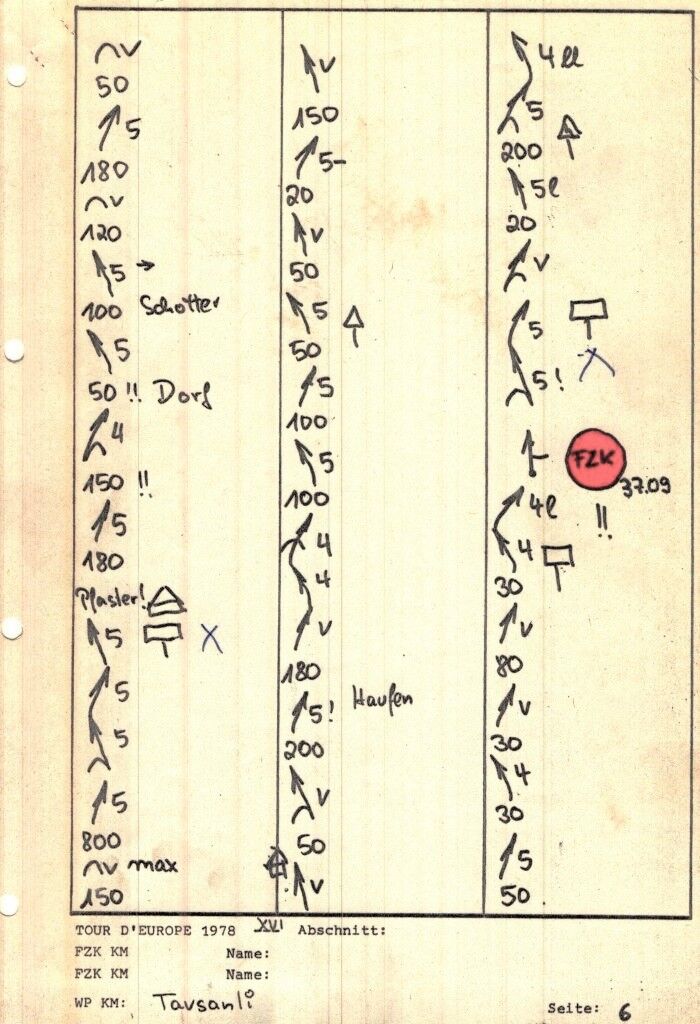 v
50
5
180
v
120
5
100 Schotter
5
50 !! Dorf
4
150 !!
5
180
Pflaster!
5 X
5
5
5
800
v max
150
v
150
5-
20
v
50
5
50
5
100
5
100
4
4
v
180
5! Haufen
200
v
50
v
4ll
5
200
5l
20
v
5
5!
FZK
37.09
4l !!
4
30
v
80
v
30
4
30
5
50
TOUR D'EUROPE 1978 XVI Abschnitt:
FZK KM Name:
FZK KM Name:
WP KM: Tavsanli
Seite: 6